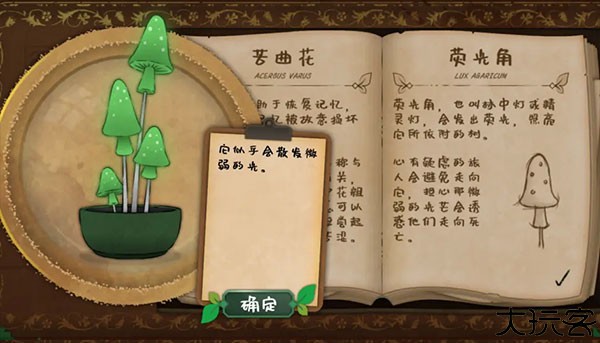 苦曲花
ACERBUS VARUS
助于恢复记忆，
记忆被故意损坏
称与
花朝
可以
荧光角
LUX AGARICUM
荧光角，也叫林中灯或精
灵灯，会发出荧光，照亮
它所依附的树。
心有疑虑的旅
人会避免走向
它，担心那微
弱的光芒会诱
惑他们走向死
亡。
它似乎会散发微
弱的光。
确定
大玩客